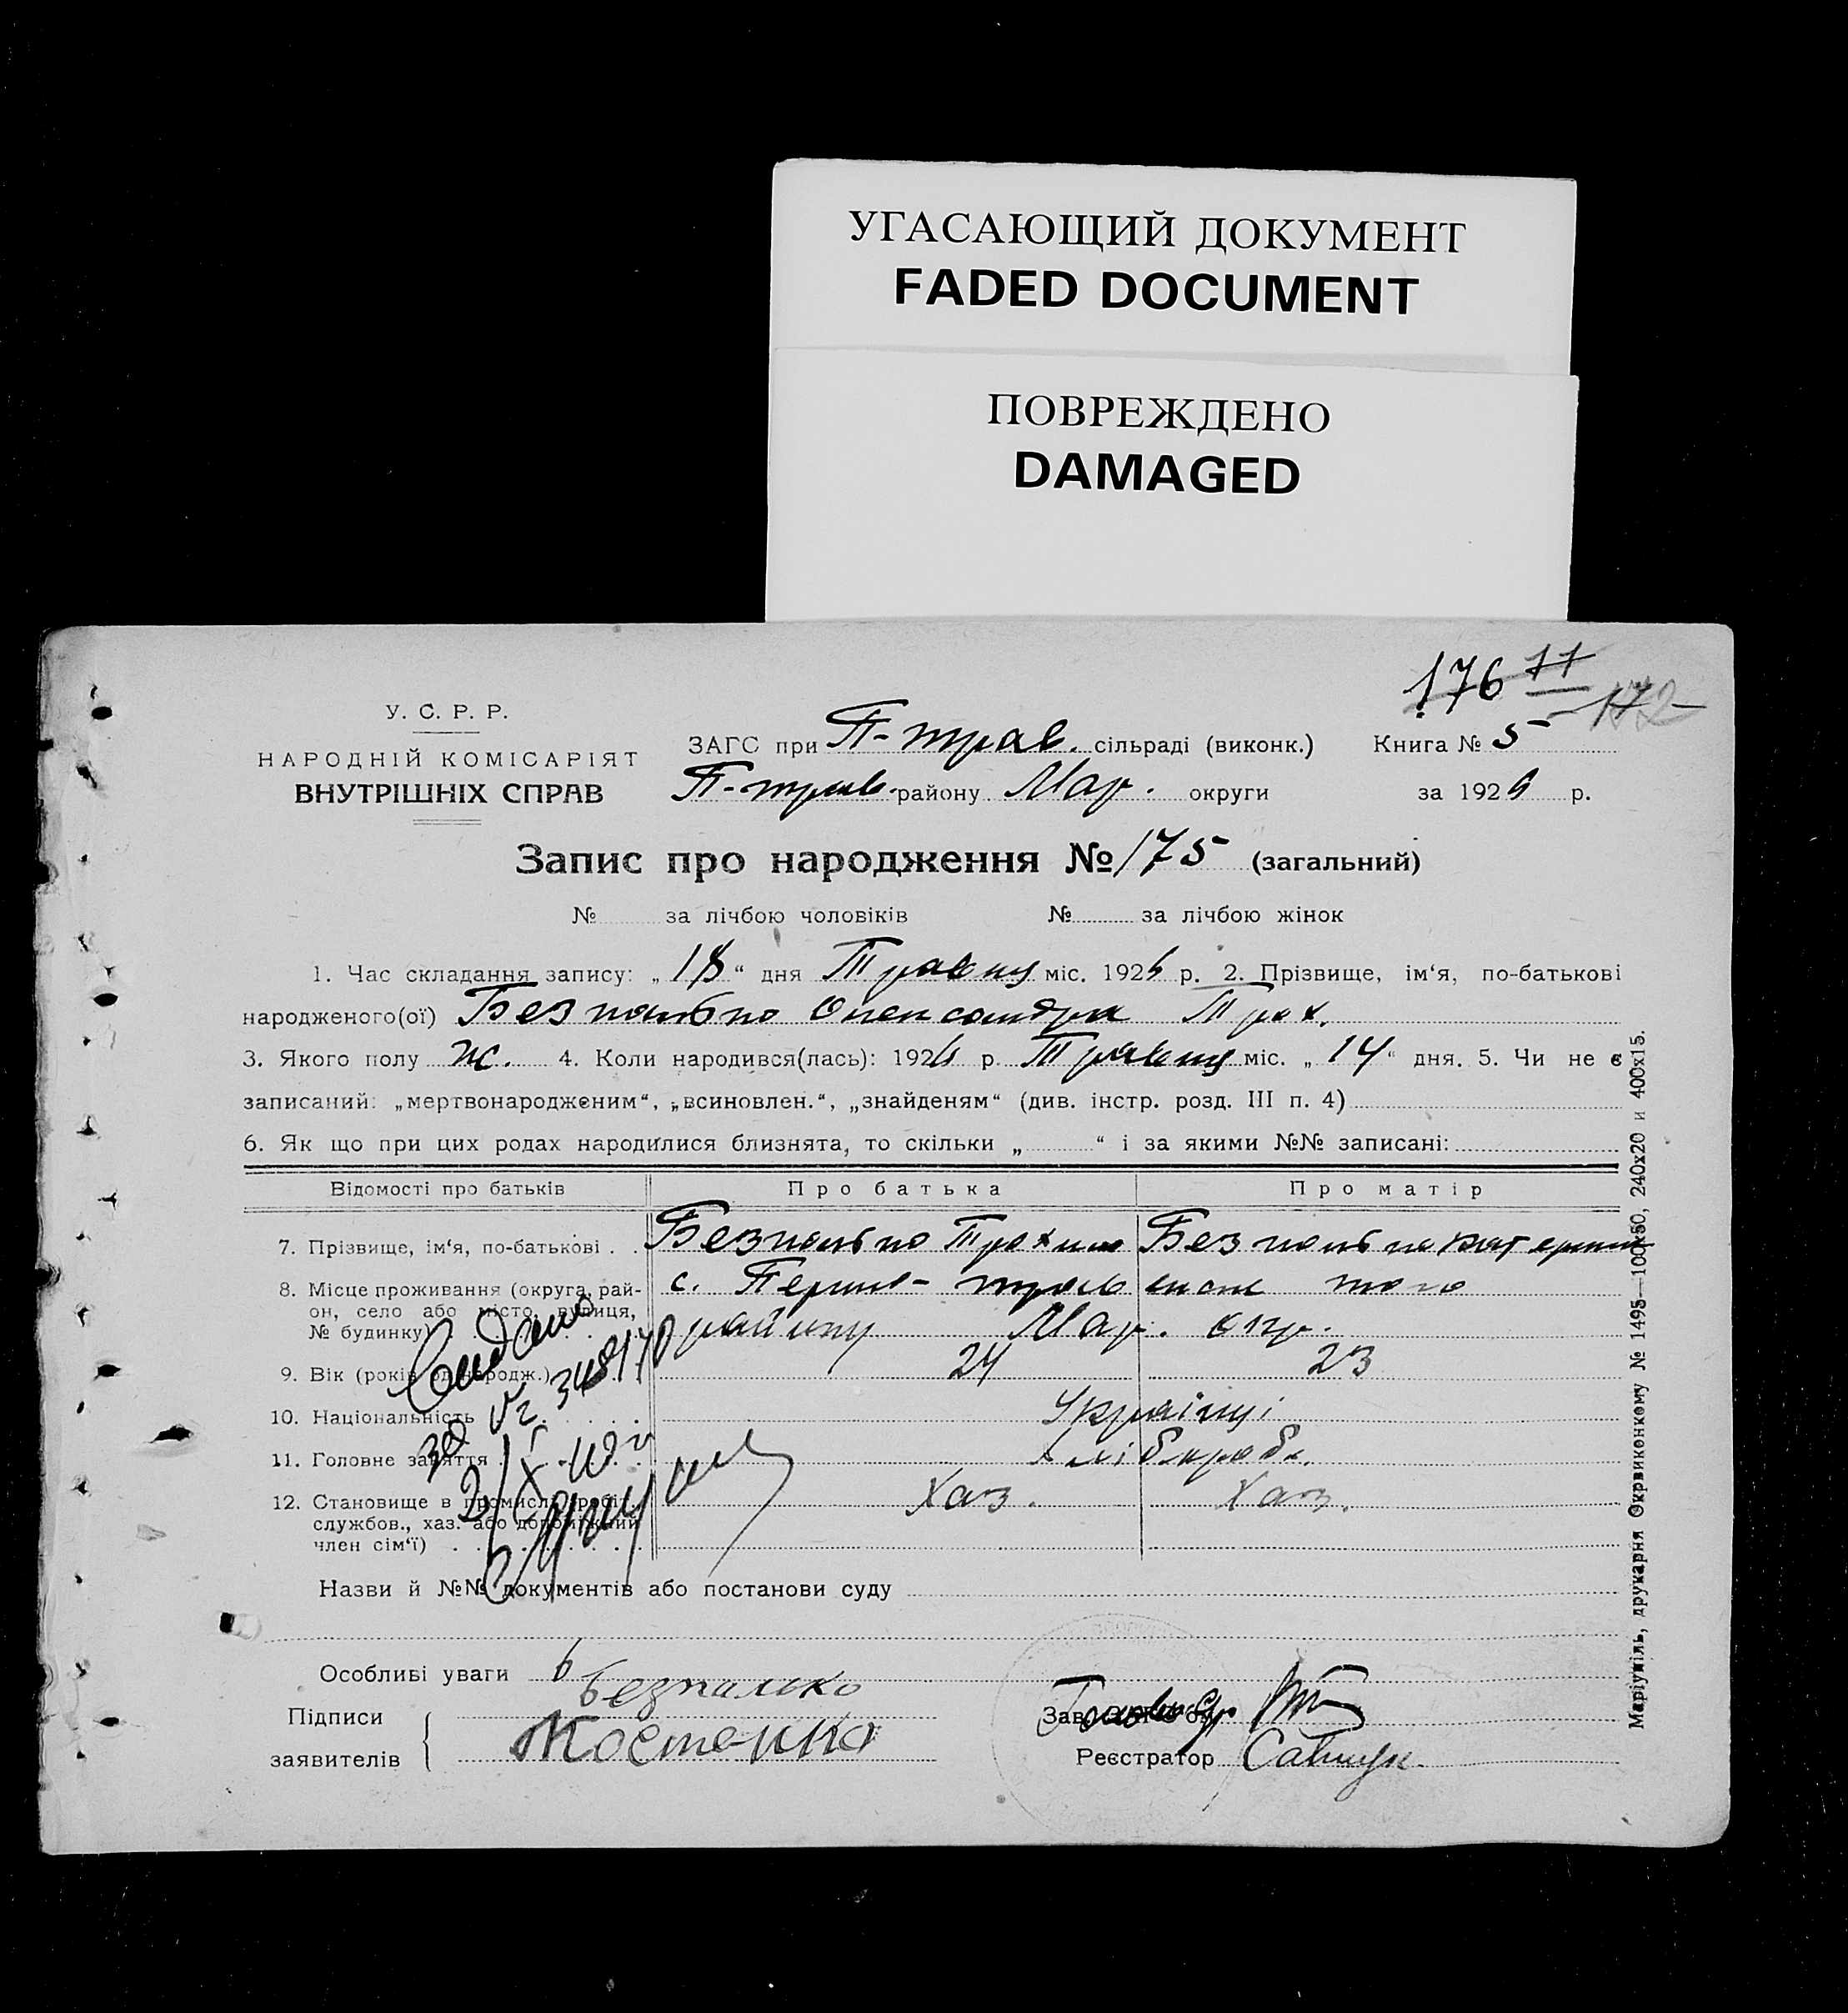 УГАСАЮЩИЙ ДОКУМЕНТ
FADED DOCUMENT
ПОВРЕЖДЕНО
DAMAGED
176 11
172
У. С. Р. Р.
НАРОДНІЙ КОМІСАРІЯТ
ВНУТРІШНІХ СПРАВ
ЗАГС при П-трав. сільраді (виконк.) Книга № 5
П-трав. району Мар. округи за 1926 р.
Запис про народження № 175 (загальний)
№ за лічбою чоловіків № за лічбою жінок
1. Час складання запису: „18“ дня Травня міс. 1926 р. 2. Прізвище, ім‘я, по-батькові
народженого(ої) Безпалько Олександра Трох.
3. Якого полу ж. 4. Коли народився(лась): 1926 р. Травня міс. „14“ дня. 5. Чи не є
записаний: „мертвонародженим“, „всиновлен.“, „знайденям“ (див. інстр. розд. III п. 4)
6. Як що при цих родах народилися близнята, то скільки „ “ і за якими №№ записані:
Відомості про батьків Про батька Про матір
7. Прізвище, ім‘я, по-батькові . . Безпалько Трохим Безпалько Катерина
8. Місце проживання (округа, рай- с. Першо-травенськ того
он, село або місто, вулиця,
№ будинку) району Мар. окр.
9. Вік (років од народж.) 24 23
10. Національність Українці
11. Головне заняття Хлібороб.
12. Становище в промисл. (робіт., Хаз. Хаз.
службов., хаз. або допоміжний
член сім‘ї)
Назви й №№ документів або постанови суду
Особливі уваги
Підписи Безпалько
заявителів Костенко
Зав. ЗАГС‘ом
Реєстратор
Маріупіль, друкарня Окрвиконкому № 1495—100х50, 240х20 и 400х15.